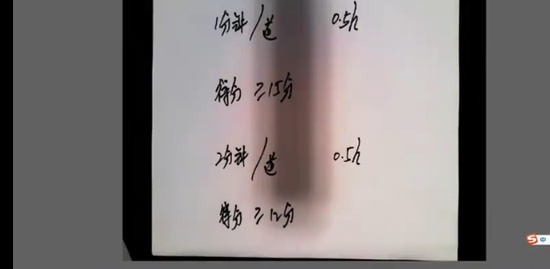 1分钟/道 0.5h
得分 ≥15分
2分钟/道 0.5h
得分 ≥12分
中